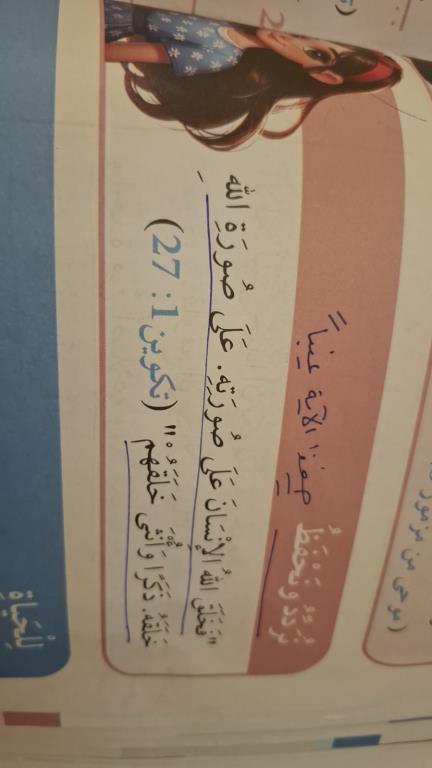 نُرَدِّدُ وَنَحْفَظُ
الآية غيباً
"فَخَلَقَ اللهُ الإِنْسَانَ عَلَى صُورَتِهِ. عَلَى صُورَةِ اللهِ
خَلَقَهُ. ذَكَرًا وَأُنْثَى خَلَقَهُمْ." (تكوين 1: 27)
(موحى من مزمور
لِلْحَيَاةِ